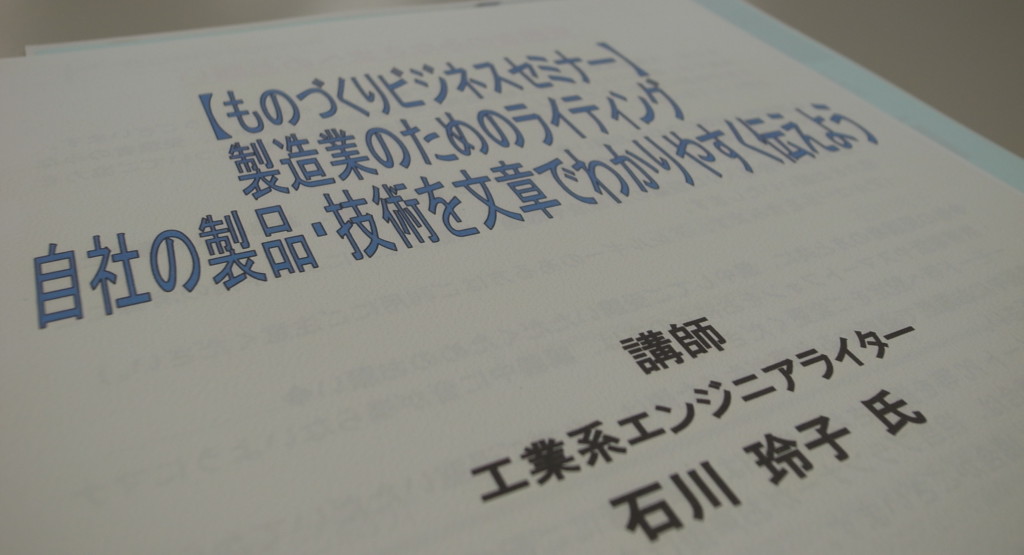 【ものづくりビジネスセミナー】
製造業のためのライティング
自社の製品・技術を文章でわかりやすく伝えよう
講師
工業系エンジニアライター
石川 玲子 氏